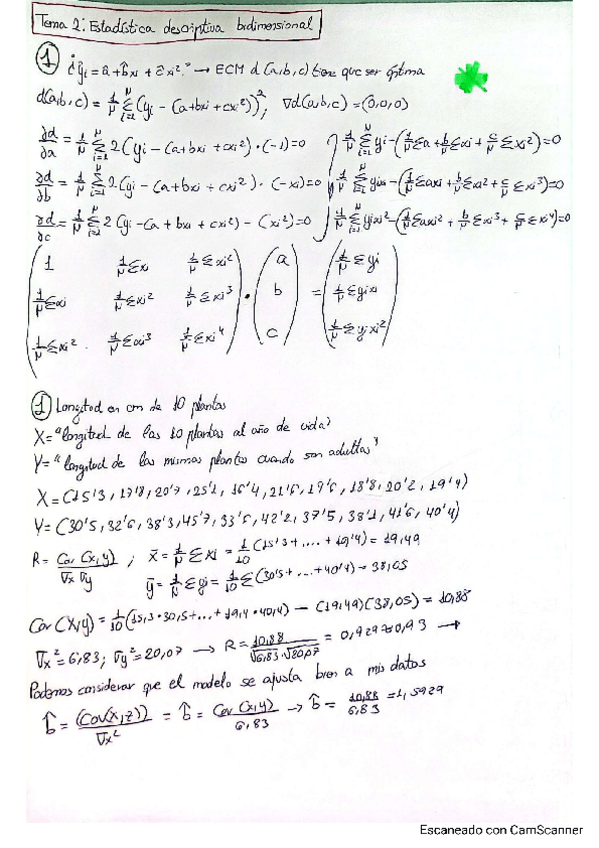 Tema 2: Estadística descriptiva bidimensional
1 ¿ŷi = â + b̂xi + ĉxi²? → ECM d(a,b,c) tiene que ser óptima
d(a,b,c) = 1/N Σ(i=1..N) (yi - (a+bxi+cxi²))², ∇d(a,b,c) = (0,0,0)
∂d/∂a = 1/N Σ(i=1..N) 2(yi - (a+bxi+cxi²)·(-1)=0 1/N Σ(i=1..N) yi - (1/N Σa + b/N Σxi + c/N Σxi²)=0
∂d/∂b = 1/N Σ(i=1..N) 2(yi - (a+bxi+cxi²)·(-xi)=0 1/N Σ(i=1..N) yixi - (1/N Σaxi + b/N Σxi² + c/N Σxi³)=0
∂d/∂c = 1/N Σ(i=1..N) 2(yi - (a+bxi+cxi²) - (xi²)=0 1/N Σ(i=1..N) yixi² - (1/N Σaxi² + b/N Σxi³ + c/N Σxi⁴)=0
1 1/N Σxi 1/N Σxi² a 1/N Σyi
1/N Σxi 1/N Σxi² 1/N Σxi³ · b = 1/N Σyixi
1/N Σxi² 1/N Σxi³ 1/N Σxi⁴ c 1/N Σyixi²
1 Longitud en cm de 10 plantas
X = "longitud de las 10 plantas al año de vida"
Y = "longitud de las mismas plantas cuando son adultas"
X = (15'3, 17'8, 20'7, 25'1, 16'4, 21'6, 19'6, 18'8, 20'2, 19'4)
Y = (30'5, 32'6, 38'3, 45'7, 33'6, 42'2, 37'5, 38'1, 41'6, 40'4)
R = Cov(x,y)/∇x∇y ; x̄ = 1/N Σxi = 1/10 (15'3+....+19'4) = 19,49
ȳ = 1/N Σyi = 1/10 Σ(30'5+...+40'4) = 38,05
Cov(X,y) = 1/10 (15,3·30,5+...+19,4·40,4) - (19,49)(38,05) = 10,88
∇x² = 6,83; ∇y² = 20,07 → R = 10,88/√6,83·√20,07 = 0,929≈0,93 →
Podemos considerar que el modelo se ajusta bien a mis datos
b̂ = (Cov(x,z))/∇x² = b̂ = Cov(x,y)/6,83 → b̂ = 10,88/6,83 = 1,5929
Escaneado con CamScanner